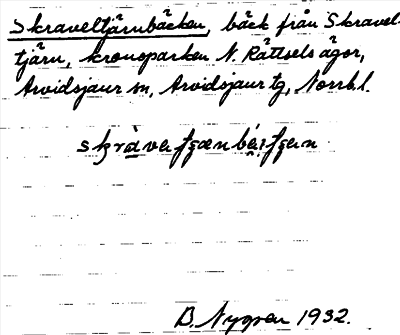 Skraveltjärnbäcken, bäck från Skravel-
tjärn, kronoparken N. Rättsels ägor,
Arvidsjaur sn, Arvidsjaur tg, Norrb.l.
B. Nygren 1932.